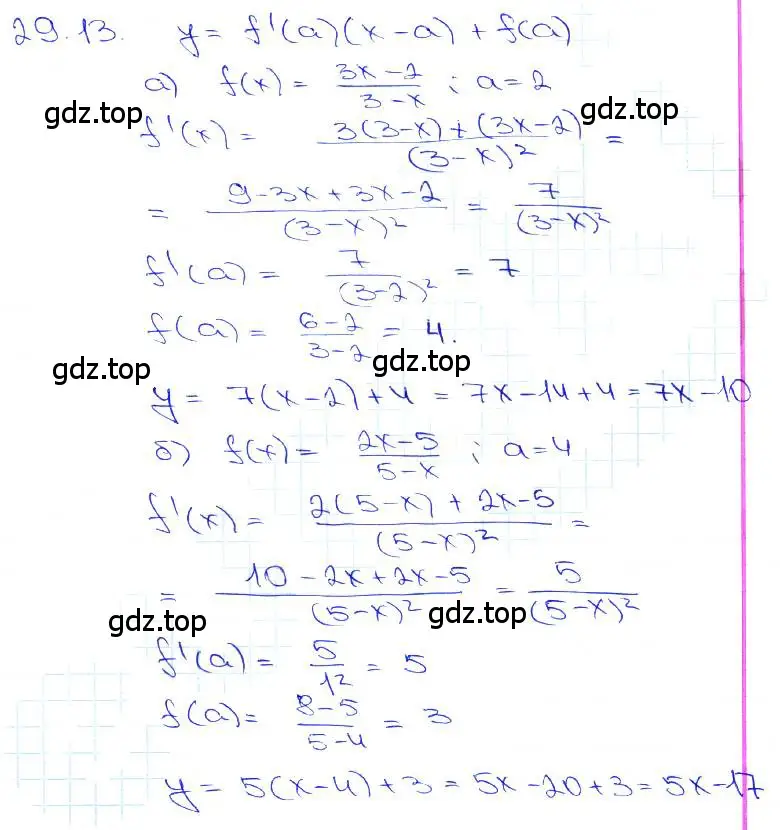 29.13. y = f'(a)(x-a) + f(a)
а) f(x) = \frac{3x-2}{3-x} ; a=2
gdz.top gdz.top
f'(x) = \frac{3(3-x)+(3x-2)}{(3-x)^2} =
= \frac{9-3x+3x-2}{(3-x)^2} = \frac{7}{(3-x)^2}
f'(a) = \frac{7}{(3-2)^2} = 7
f(a) = \frac{6-2}{3-2} = 4.
gdz.top gdz.top
y = 7(x-2)+4 = 7x-14+4 = 7x-10
б) f(x) = \frac{2x-5}{5-x} ; a=4
f'(x) = \frac{2(5-x)+2x-5}{(5-x)^2} =
= \frac{10-2x+2x-5}{(5-x)^2} = \frac{5}{(5-x)^2}
gdz.top gdz.top
f'(a) = \frac{5}{1^2} = 5
f(a) = \frac{8-5}{5-4} = 3
y = 5(x-4)+3 = 5x-20+3 = 5x-17